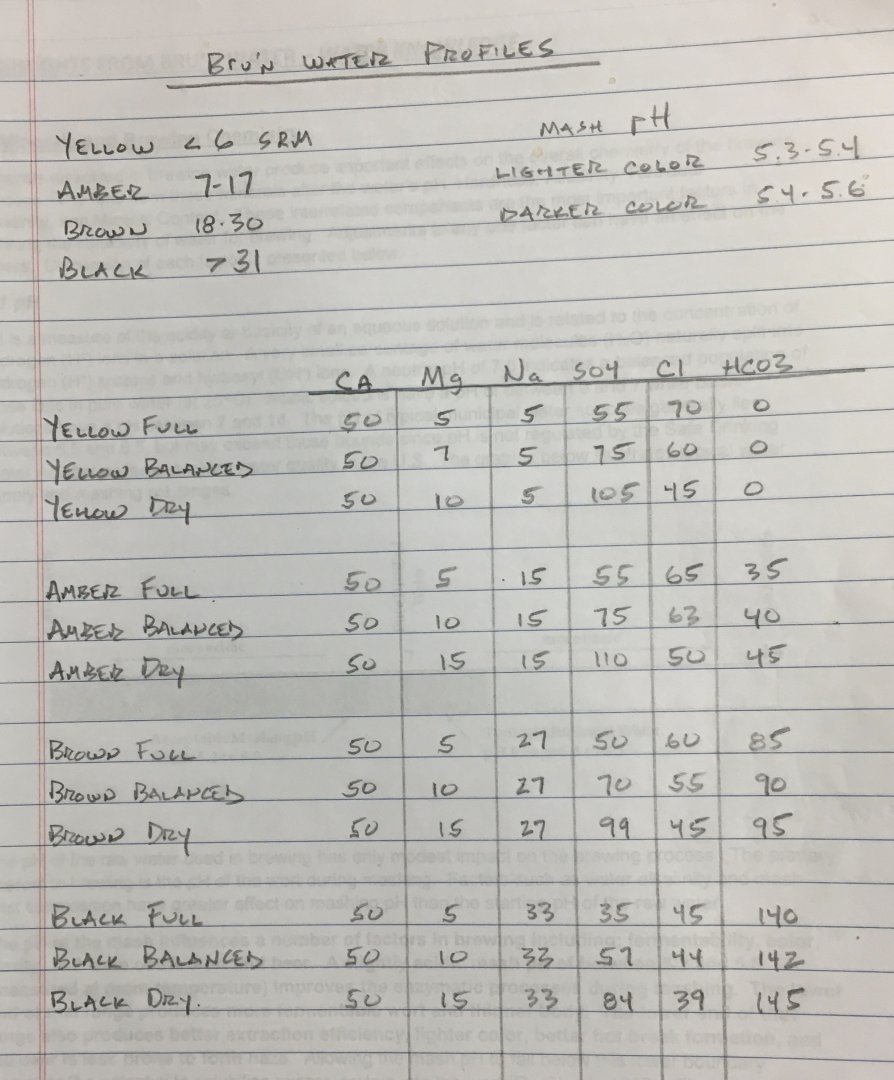 BRU'N WATER PROFILES
YELLOW < 6 SRM
AMBER 7-17
BROWN 18-30
BLACK > 31
MASH pH
LIGHTER COLOR 5.3-5.4
DARKER COLOR 5.4-5.6
CA Mg Na SO4 Cl HCO3
YELLOW FULL 50 5 5 55 70 0
YELLOW BALANCED 50 7 5 75 60 0
YELLOW DRY 50 10 5 105 45 0
AMBER FULL 50 5 15 55 65 35
AMBER BALANCED 50 10 15 75 63 40
AMBER DRY 50 15 15 110 50 45
BROWN FULL 50 5 27 50 60 85
BROWN BALANCED 50 10 27 70 55 90
BROWN DRY 50 15 27 99 45 95
BLACK FULL 50 5 33 35 45 140
BLACK BALANCED 50 10 33 57 44 142
BLACK DRY. 50 15 33 84 39 145